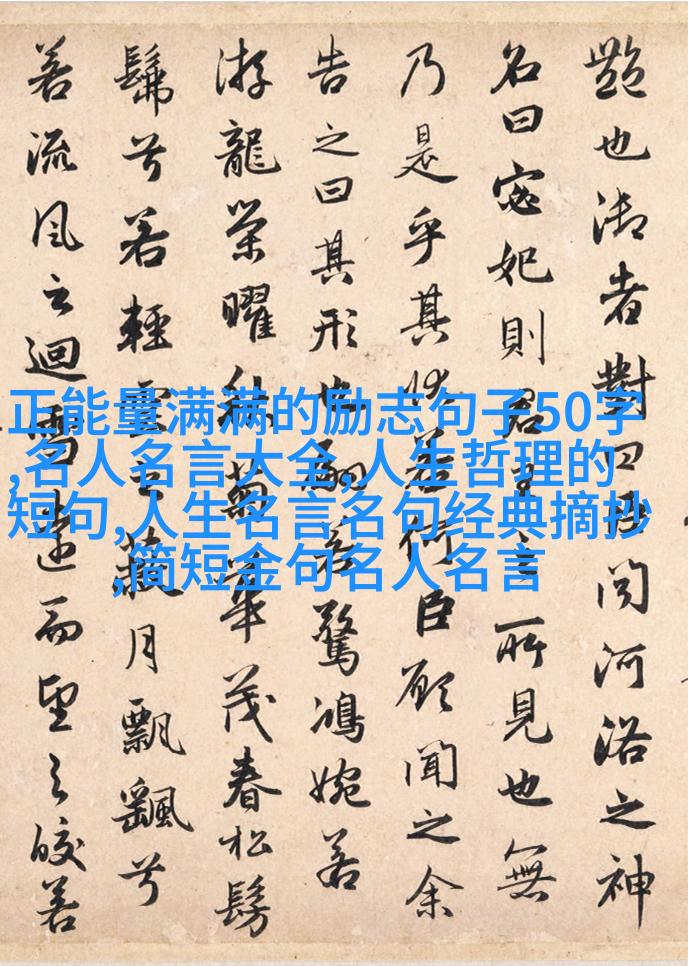 艷也御者對曰臣聞河洛之神
名曰宓妃則君王之所見也無
乃是乎其狀若何臣願聞之余
告之曰其形也翩若驚鴻婉若
游龍榮曜秋菊華茂春松髣
髴兮若輕雲之蔽月飄颻兮
若流風之迴雪遠而望之皎若
正能量满满的励志句子50字
,名人名言大全,人生哲理的
短句,人生名言名句经典摘抄
,简短金句名人名言